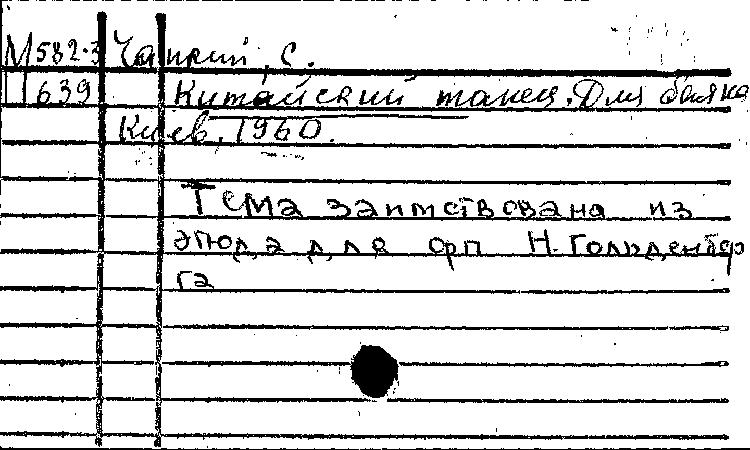 М582.3 Чапкий, С.
П639 Китайский танец. Для баяна
Киев, 1960.
Тема заимствована из
этюда для фп Н. Гольденбер
га